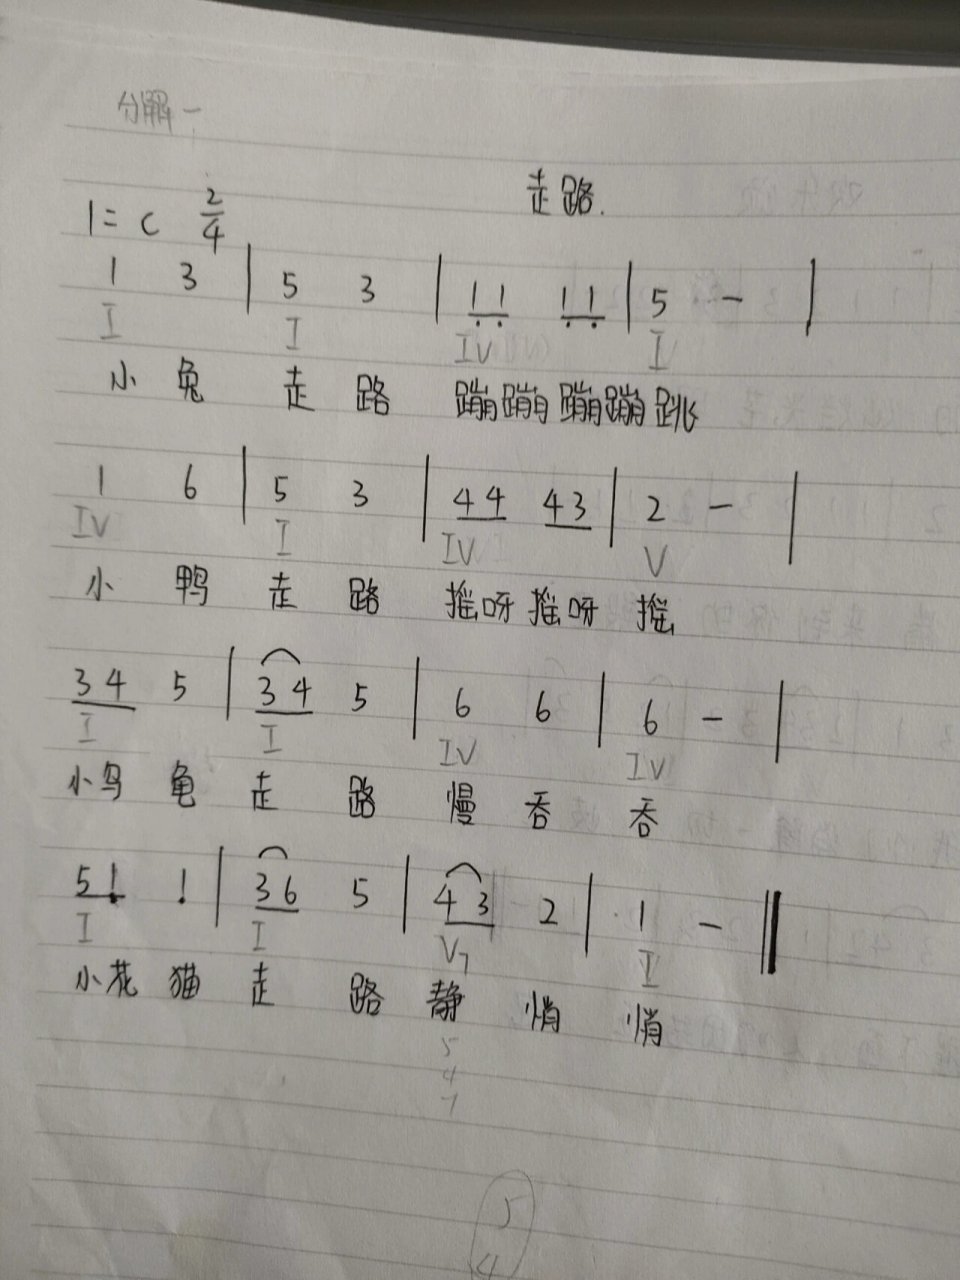 分解一
走路.
1=C 2/4
1 3 | 5 3 | 1̣1̣ 1̣1̣ | 5 - |
I I IV I
小 兔 走 路 蹦蹦 蹦蹦 跳
1 6 | 5 3 | 44 43 | 2 - |
IV I IV V
小 鸭 走 路 摇呀 摇呀 摇
34 5 | 34 5 | 6 6 | 6 - |
I I IV IV
小乌 龟 走 路 慢 吞 吞
51 1 | 36 5 | 43 2 | 1 - ‖
I I V7 I
小花 猫 走 路 静 悄 悄
5
4
7
5
4